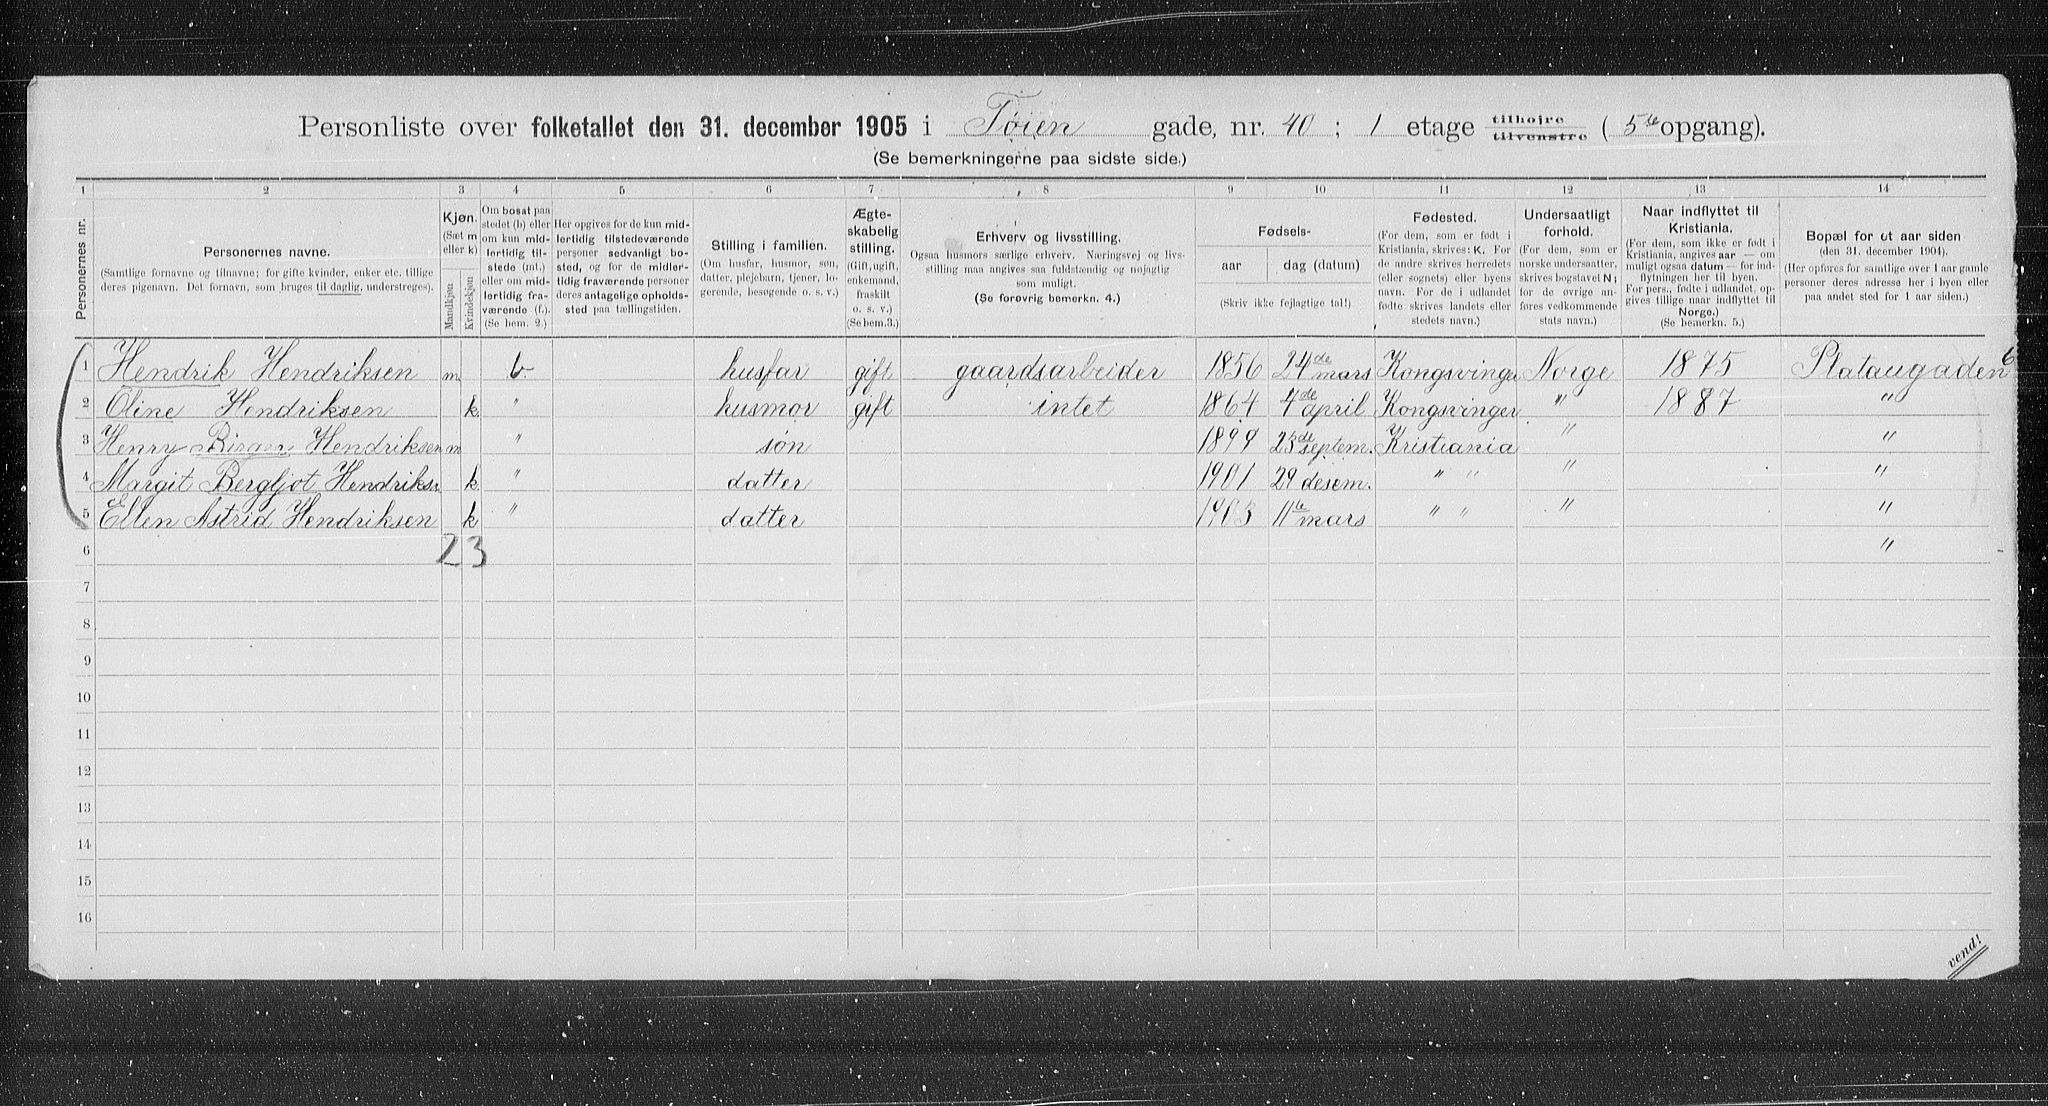 Personliste over folketallet den 31. december 1905 i Tøien gade, nr. 40 ; 1 etage tilhøjre tilvenstre ( 5te opgang).
(Se bemerkningerne paa sidste side.)
1 2 3 4 5 6 7 8 9 10 11 12 13 14
Personernes nr.
Personernes navne.
(Samtlige fornavne og tilnavne; for gifte kvinder, enker etc. tillige
deres pigenavn. Det fornavn, som bruges til daglig, understreges).
Kjøn.
(Sæt m
eller k)
Mandkjøn
Kvindekjøn
Om bosat paa
stedet (b) eller
om kun mid-
lertidig til-
stede (mt.)
eller om mid-
lertidig fra-
værende (f.).
(Se bem. 2.)
Her opgives for de kun mid-
lertidig tilstedeværende
personer sedvanlig bo-
sted, og for de midler-
tidig fraværende personer
deres antagelige opholds-
sted paa tællingstiden.
Stilling i familien.
(Om husfar, husmor, søn,
datter, plejebarn, tjener, lo-
gerende, besøgende o. s. v.)
Ægte-
skabelig
stilling.
(Gift, ugift,
enkemand,
fraskilt
o. s. v.)
(Se bem. 3.)
Erhverv og livsstilling.
Ogsaa husmors særlige erhverv. Næringsvej og livs-
stilling maa angives saa fuldstændig og nøjagtig
som muligt.
(Se forøvrig bemerkn. 4.)
Fødsels-
aar
dag (datum)
(Skriv ikke fejlagtige tal!)
Fødested.
(For dem, som er født i
Kristiania, skrives: K. For
de andre skrives herredets
(eller sognets) eller byens
navn. For de i udlandet
fødte skrives landets eller
stedets navn.)
Undersaatligt
forhold.
(For dem, som er
norske undersaatter,
skrives bogstavet N;
for de øvrige an-
føres vedkommende
stats navn.)
Naar indflyttet til
Kristiania.
(For dem, som ikke er født i
Kristiania, angives aar — om
muligt ogsaa datum — for ind-
flytningen her til byen.
For pers., fødte i udlandet, op-
gives tillige naar indflyttet til
Norge.)
(Se bemerkn. 5.)
Bopæl for et aar siden
(den 31. december 1904).
(Her opføres for samtlige over 1 aar gamle
personer deres adresse her i byen eller
paa andet sted for 1 aar siden.)
1 Hendrik Hendriksen m b. husfar gift gaardsarbeider 1856 24de mars Kongsvinger Norge 1875 Plataugaden 6
2 Oline Hendriksen k " husmor gift intet 1864 4de april Kongsvinger " 1887 "
3 Henry Birger Hendriksen m " søn 1899 25de septem. Kristiania " "
4 Margit Bergljot Hendriksn k " datter 1901 29 desem. " " " "
5 Ellen Astrid Hendriksen k " datter 1903 11te mars " " " "
6 2 3 "
7
8
9
10
11
12
13
14
15
16
vend!